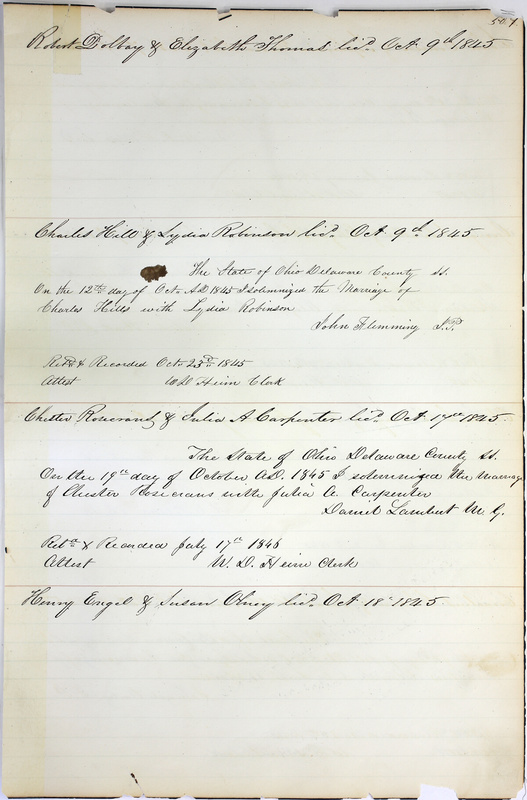 Robert Dolbay & Elizabeth Thomas licd. Oct 9th 1845
Charles Hill & Lydia Robinson licd. Oct 9th 1845
The State of Ohio Delaware County ss.
On the 12th day of Oct. AD 1845 I solemnized the Marriage of
Charles Hills with Lydia Robinson
John Flemming J.P.
Retd & Recorded Oct 23rd 1845
Attest W D Heim Clerk
Chester Rosecrans & Julia A Carpenter licd. Oct. 17th 1845.
The State of Ohio Delaware County ss.
On the 19th day of October AD. 1845 I solemnized the Marriage
of Chester Rosecrans with Julia A. Carpenter
Daniel Lambert M. G.
Retd & Recorded July 17th 1846
Attest W. D. Heim Clerk
Henry Engel & Susan Olney licd. Oct 18th 1845.